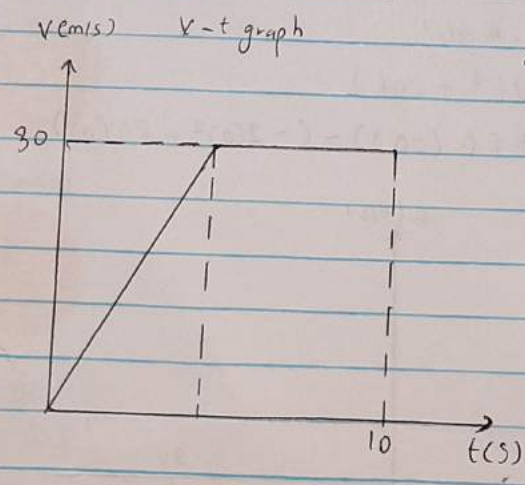 V(m/s) V-t graph
30
10 t(s)